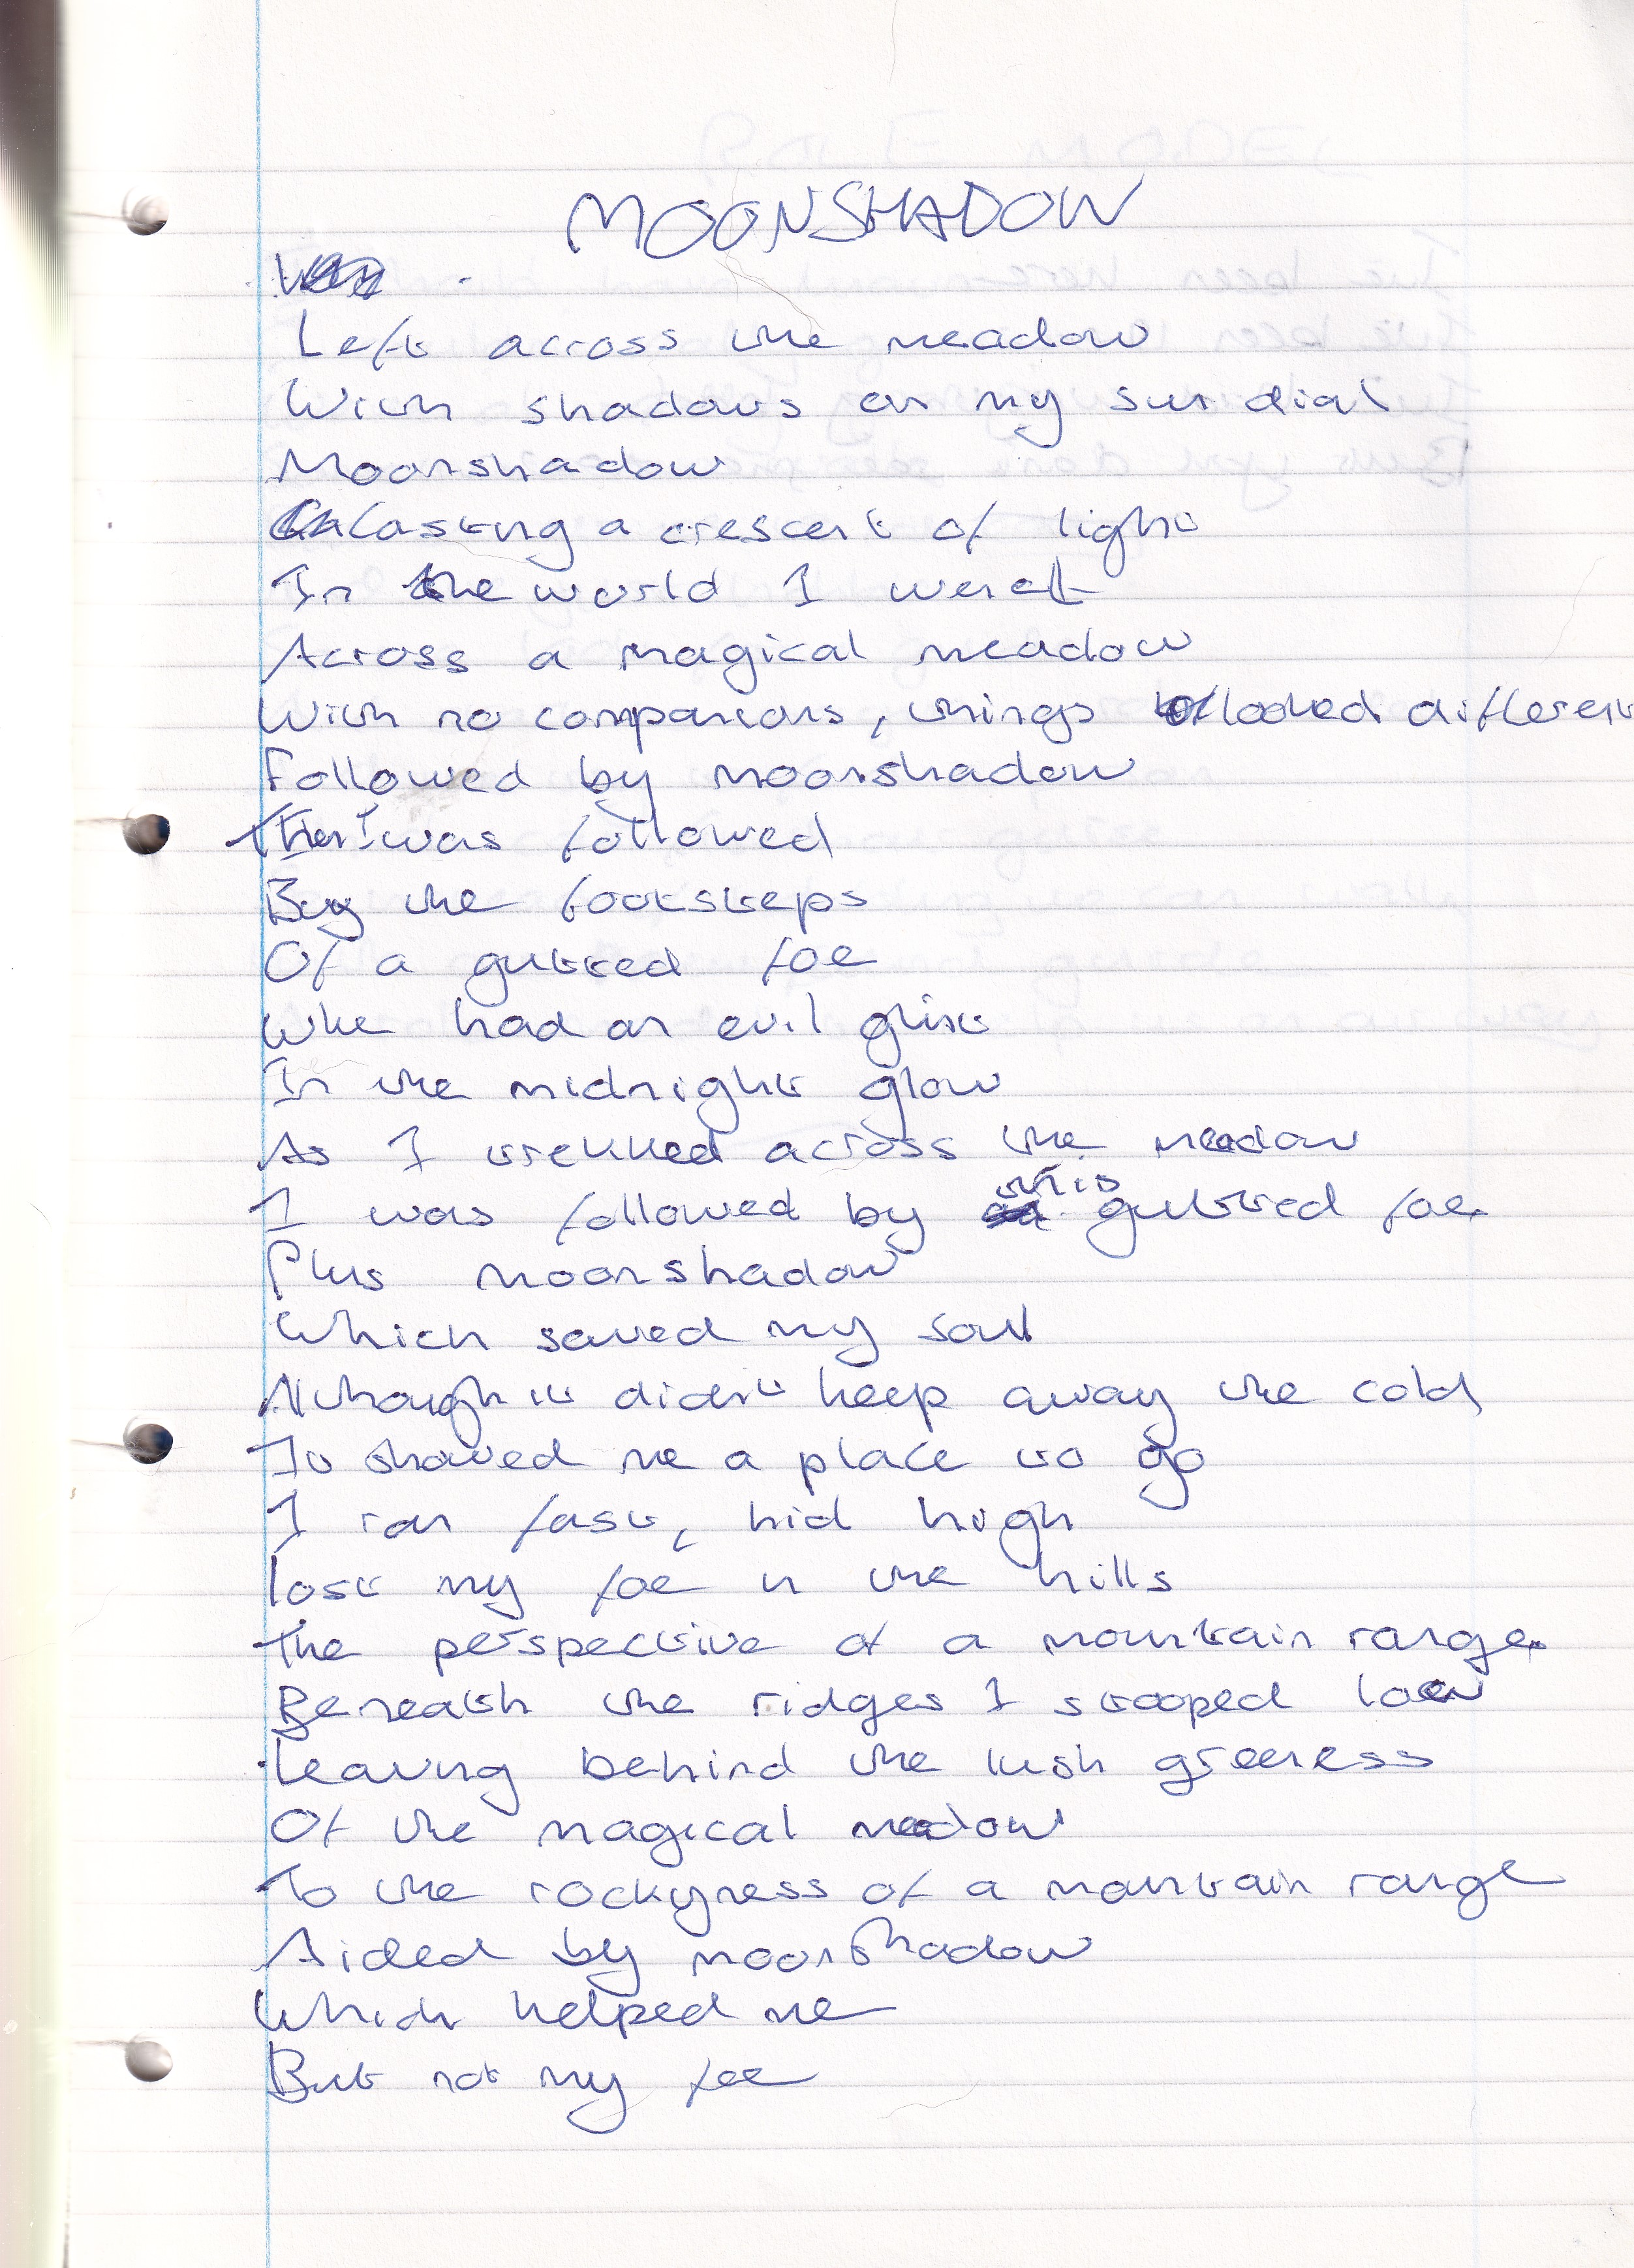 MOONSHADOW
Left across the meadow
With shadows on my sun dial
Moonshadow
Casting a crescent of light
In the world I went
Across a magical meadow
With no companions, things looked different
Followed by moonshadow
Then I was followed
By the footsteps
Of a gutted foe
Who had an evil glint
In the midnight glow
As I trekked across the meadow
I was followed by this gutted foe
Plus moonshadow
Which saved my soul
Although it didn't keep away the cold
It showed me a place to go
I ran fast, hid high
lost my foe in the hills
The perspective of a mountain range
Beneath the ridges I stooped low
Leaving behind the lush greeness
Of the magical meadow
To the rockyness of a mountain range
Aided by moonshadow
Which helped me
But not my foe